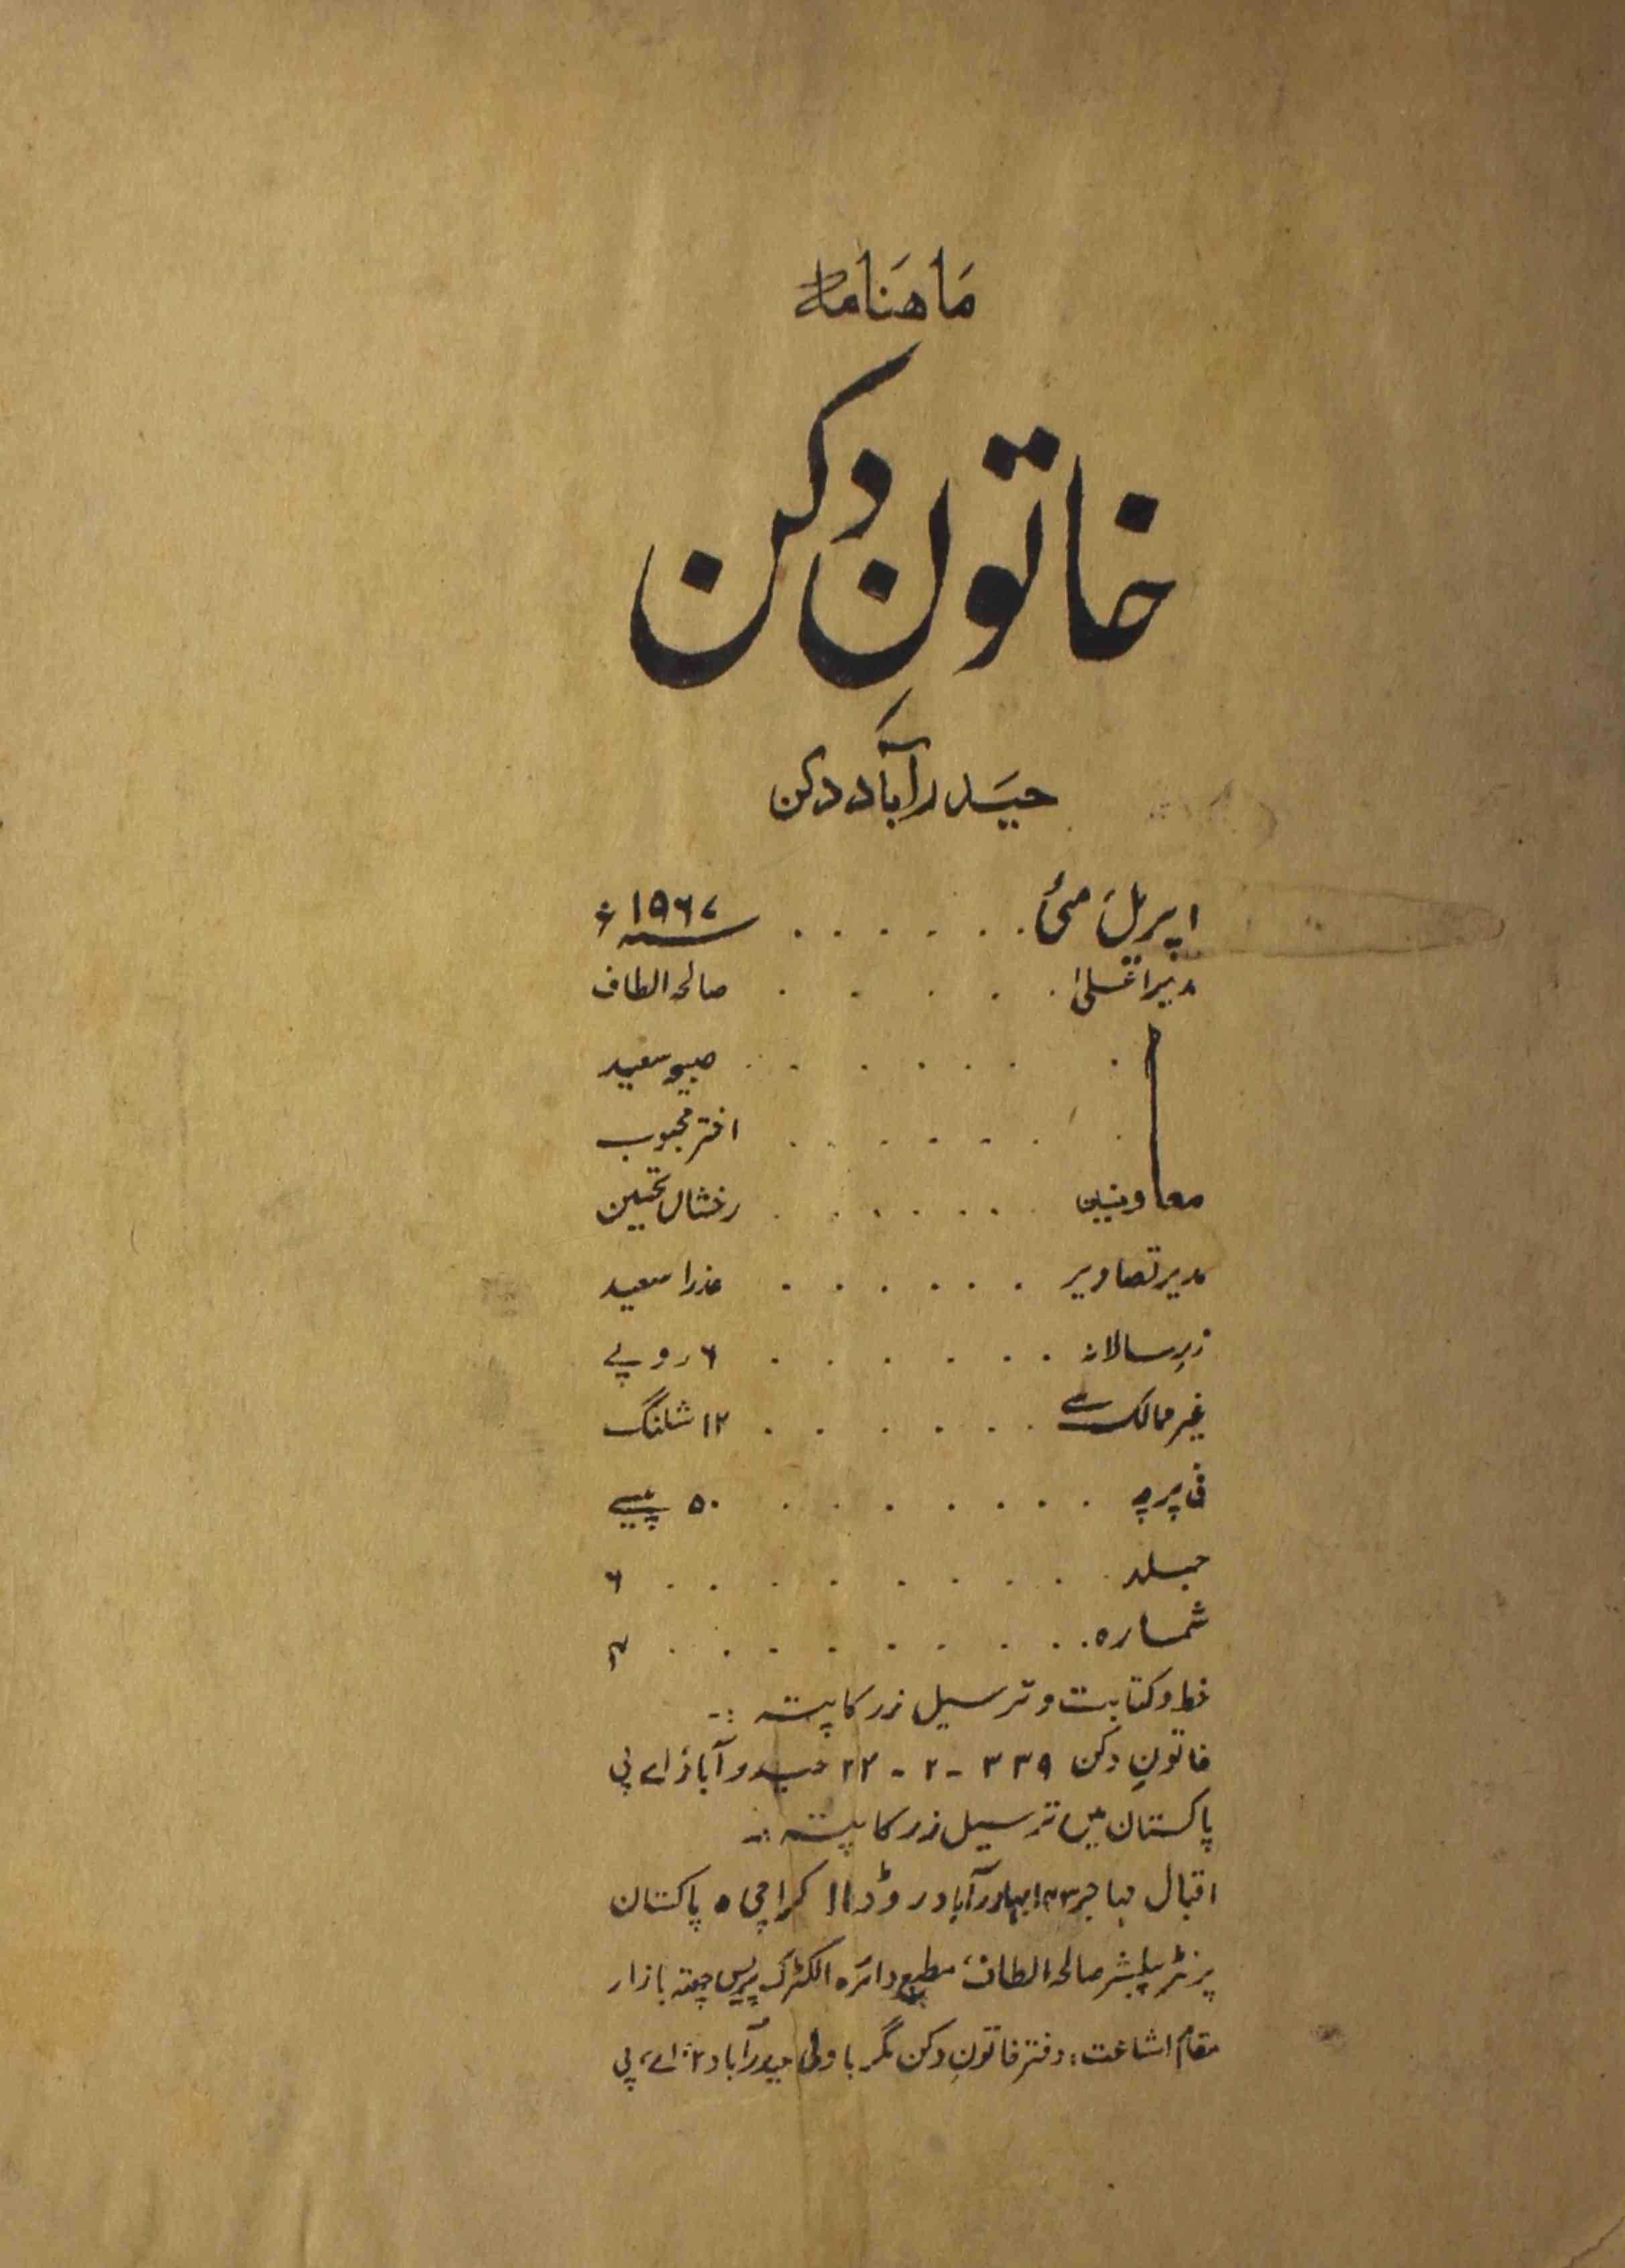 ماہنامہ
خاتونِ دکن
حیدرآباد دکن
اپریل مئی . . . . . . سنہ ۱۹۶۷ء
مدیر اعلیٰ . . . . . صالحہ الطاف
. . . . . . . سعید
. . . . . . اختر محبوب
معاونین . . . . . . رخشاں تحسین
مدیر تصاویر . . . . . . عذرا سعید
زرِ سالانہ . . . . . . ۶ روپے
غیر ممالک سے . . . . . . ۱۲ شلنگ
فی پرچہ . . . . . . . ۵۰ پیسے
جلد . . . . . . . . ۶
شمارہ . . . . . . . . . ۴
خط و کتابت و ترسیل زر کا پتہ :-
خاتونِ دکن ۳۳۹ - ۲ - ۲۲ حیدرآباد، اے پی
پاکستان میں ترسیل زر کا پتہ :-
اقبال مہاجر بہادر آباد روڈ ۱۱ کراچی ۵ پاکستان
پرنٹر پبلیشر صالحہ الطاف، مطبع دائرہ الکٹرک پریس چھتہ بازار
مقام اشاعت : دفتر خاتونِ دکن باولی حیدرآباد ۲ اے، پی